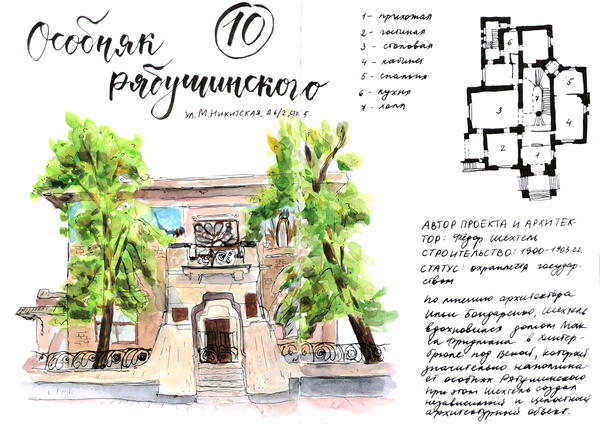 Особняк
Рябушинского
10
ул. М. Никитская, д. 6/2, стр. 5
1 - прихожая
2 - гостиная
3 - столовая
4 - кабинет
5 - спальня
6 - кухня
7 - холл
6
5
7
3
4
2
1
АВТОР ПРОЕКТА И АРХИТЕК-
ТОР: Фёдор Шехтель
СТРОИТЕЛЬСТВО: 1900-1903 гг.
СТАТУС: охраняется государ-
ством
По мнению архитектора
Ильи Бондаренко, Шехтель
вдохновился домом Мак-
са Фридмана в Хинтер-
брюле под Веной, который
значительно напомина-
ет особняк Рябушинского.
При этом Шехтель создал
независимый и целостный
архитектурный объект.